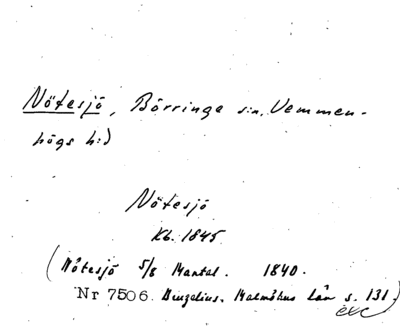 Nötesjö, Börringe s:n, Vemmen-
högs h:d
Nötesjö
Kb. 1845
(Nötesjö 5/8 Mantal. 1840.
Nr 7506. Bruzelius. Malmöhus län s. 131.)
exc